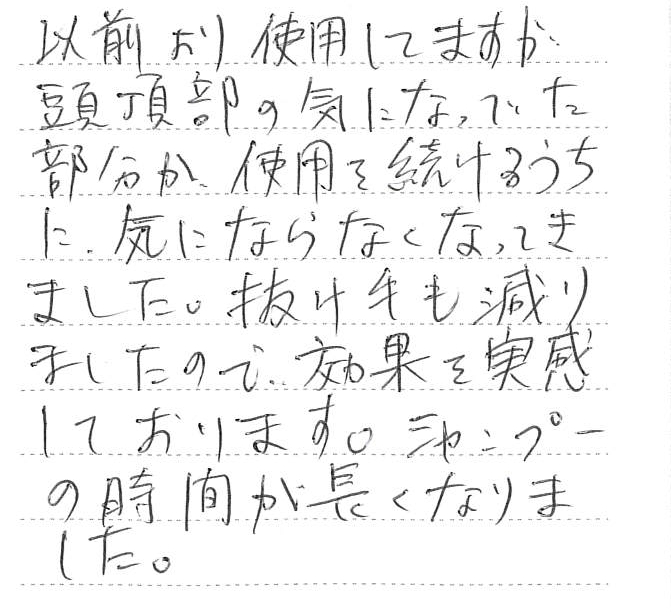 以前より使用してますが、
頭頂部の気になっていた
部分が、使用を続けるうち
に、気にならなくなってき
ました。抜け毛も減り
ましたので、効果を実感
しております。シャンプー
の時間が長くなりま
した。